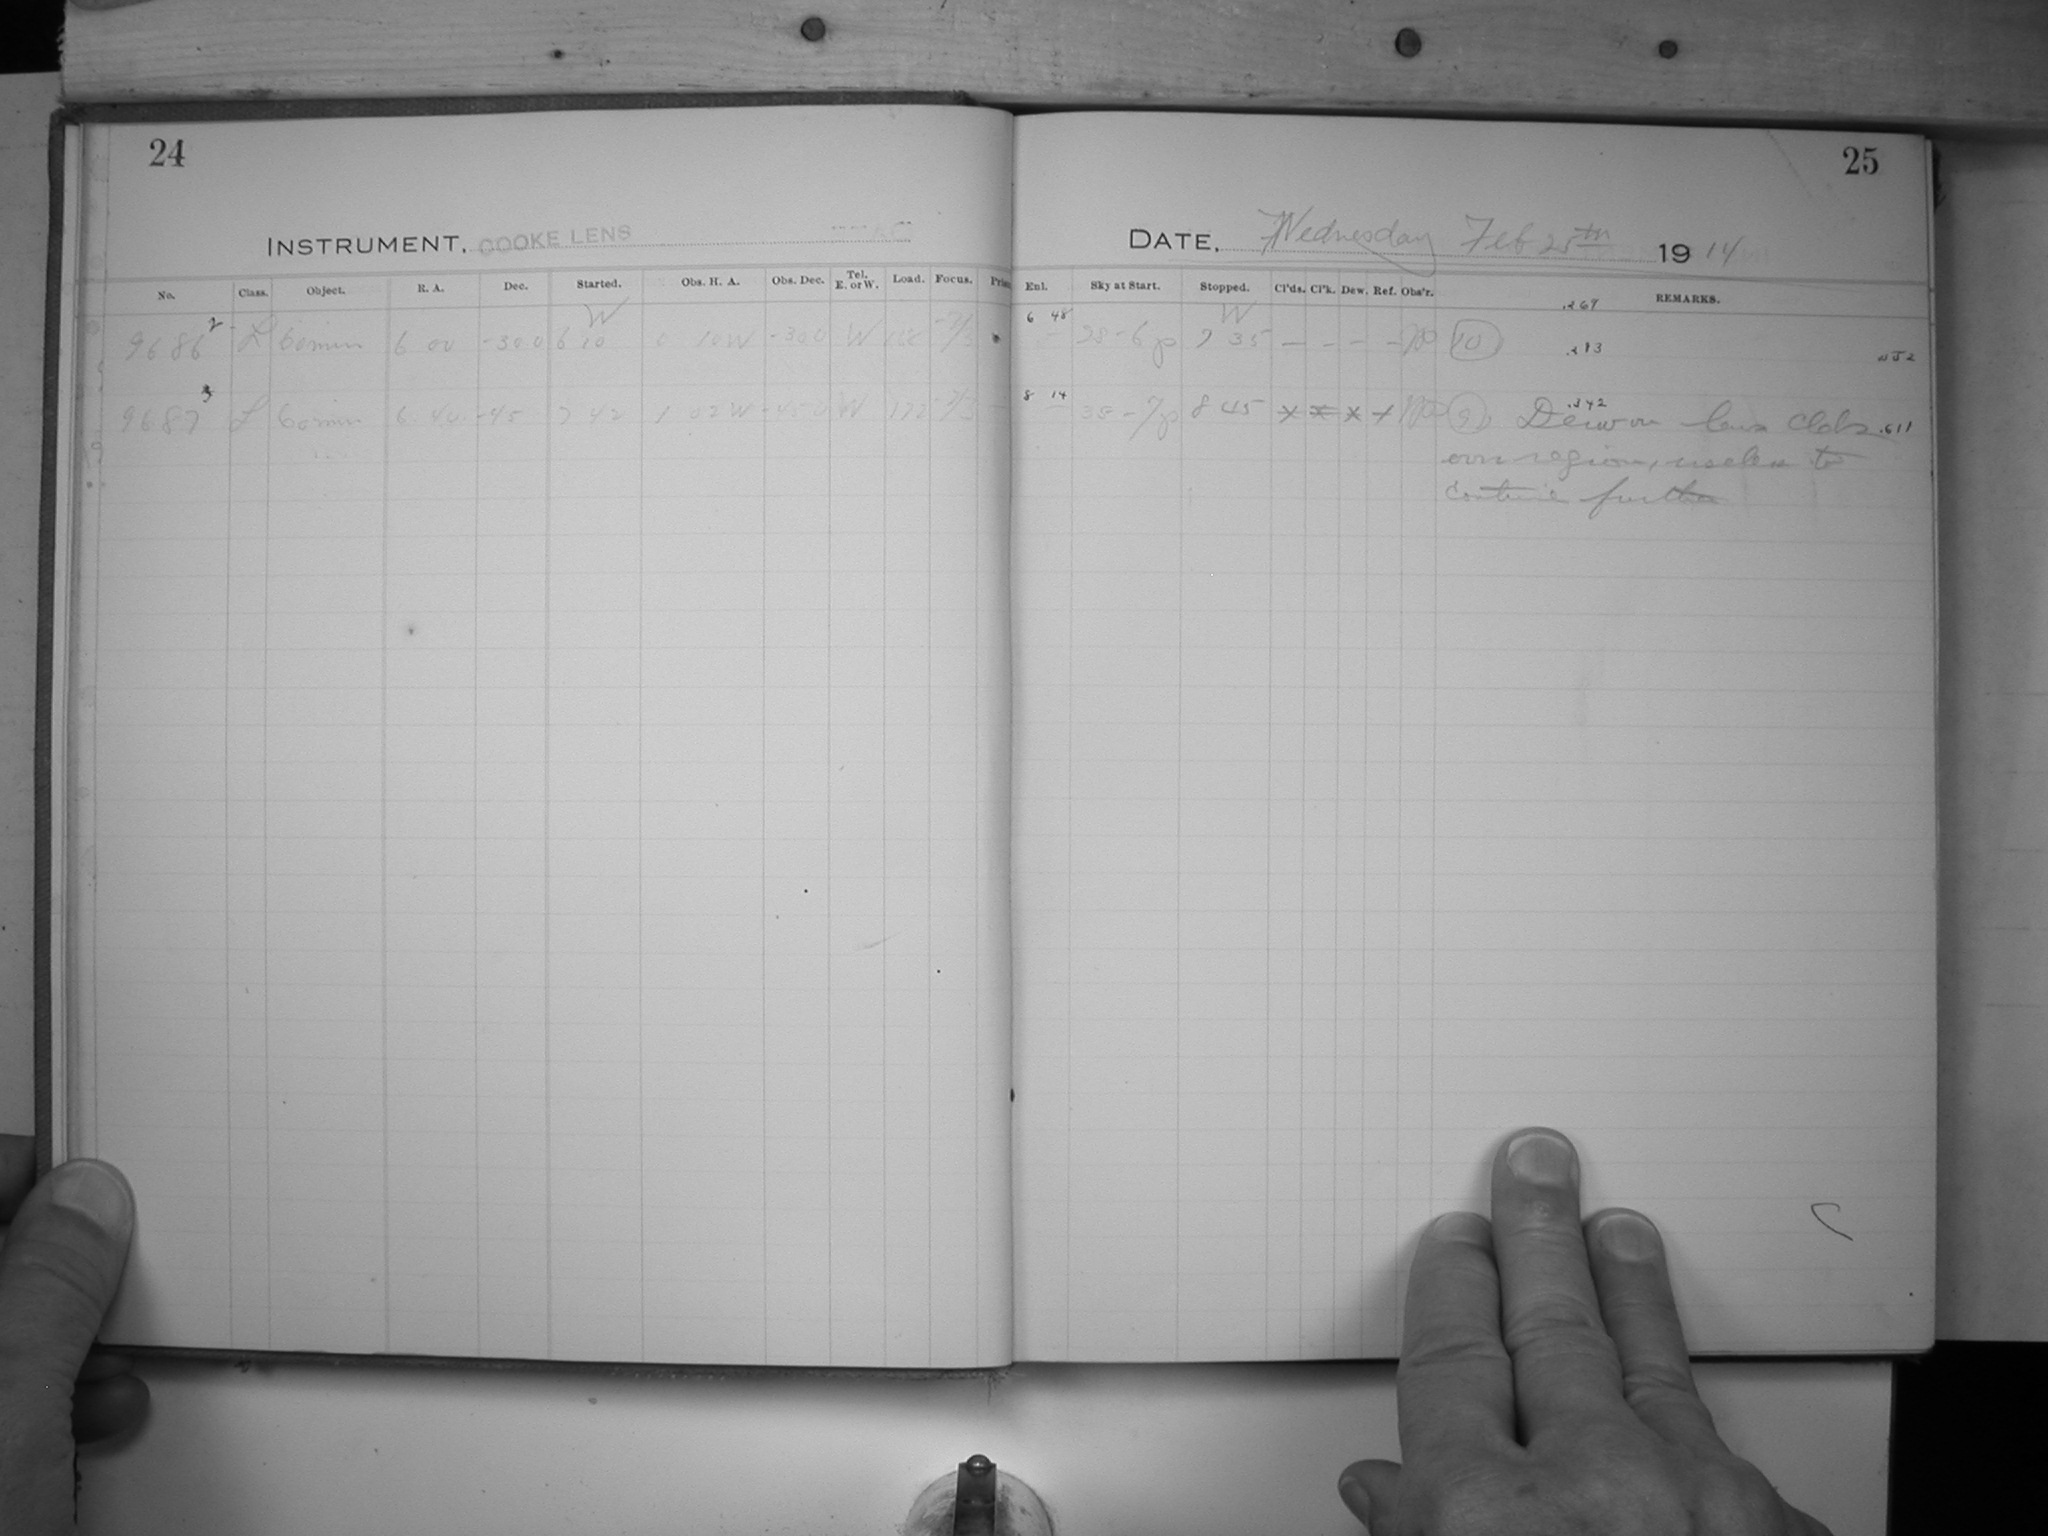 24
25
INSTRUMENT, COOKE LENS
DATE, Wednesday Feb 25th 1914
No. Class. Object. R. A. Dec. Started. Obs. H. A. Obs. Dec. Tel. E. or W. Load. Focus. Enl. Sky at Start. Stopped. Cl'ds. Cl'k. Dew. Ref. Obs'r. REMARKS.
.269
W 6 48 W
9686 2 L 60 min 6 00 -30 0 6 10 0 10 W -30 0 W - 6 p 7 35 — - — - 10 .293
3 8 14 .342
9687 L 60 min 6 40 -45 7 42 1 02 W -45 0 W 172 35 - 7 p 8 45 x x x 9 Dew on lens Clds .611
over region, useless to
continue further